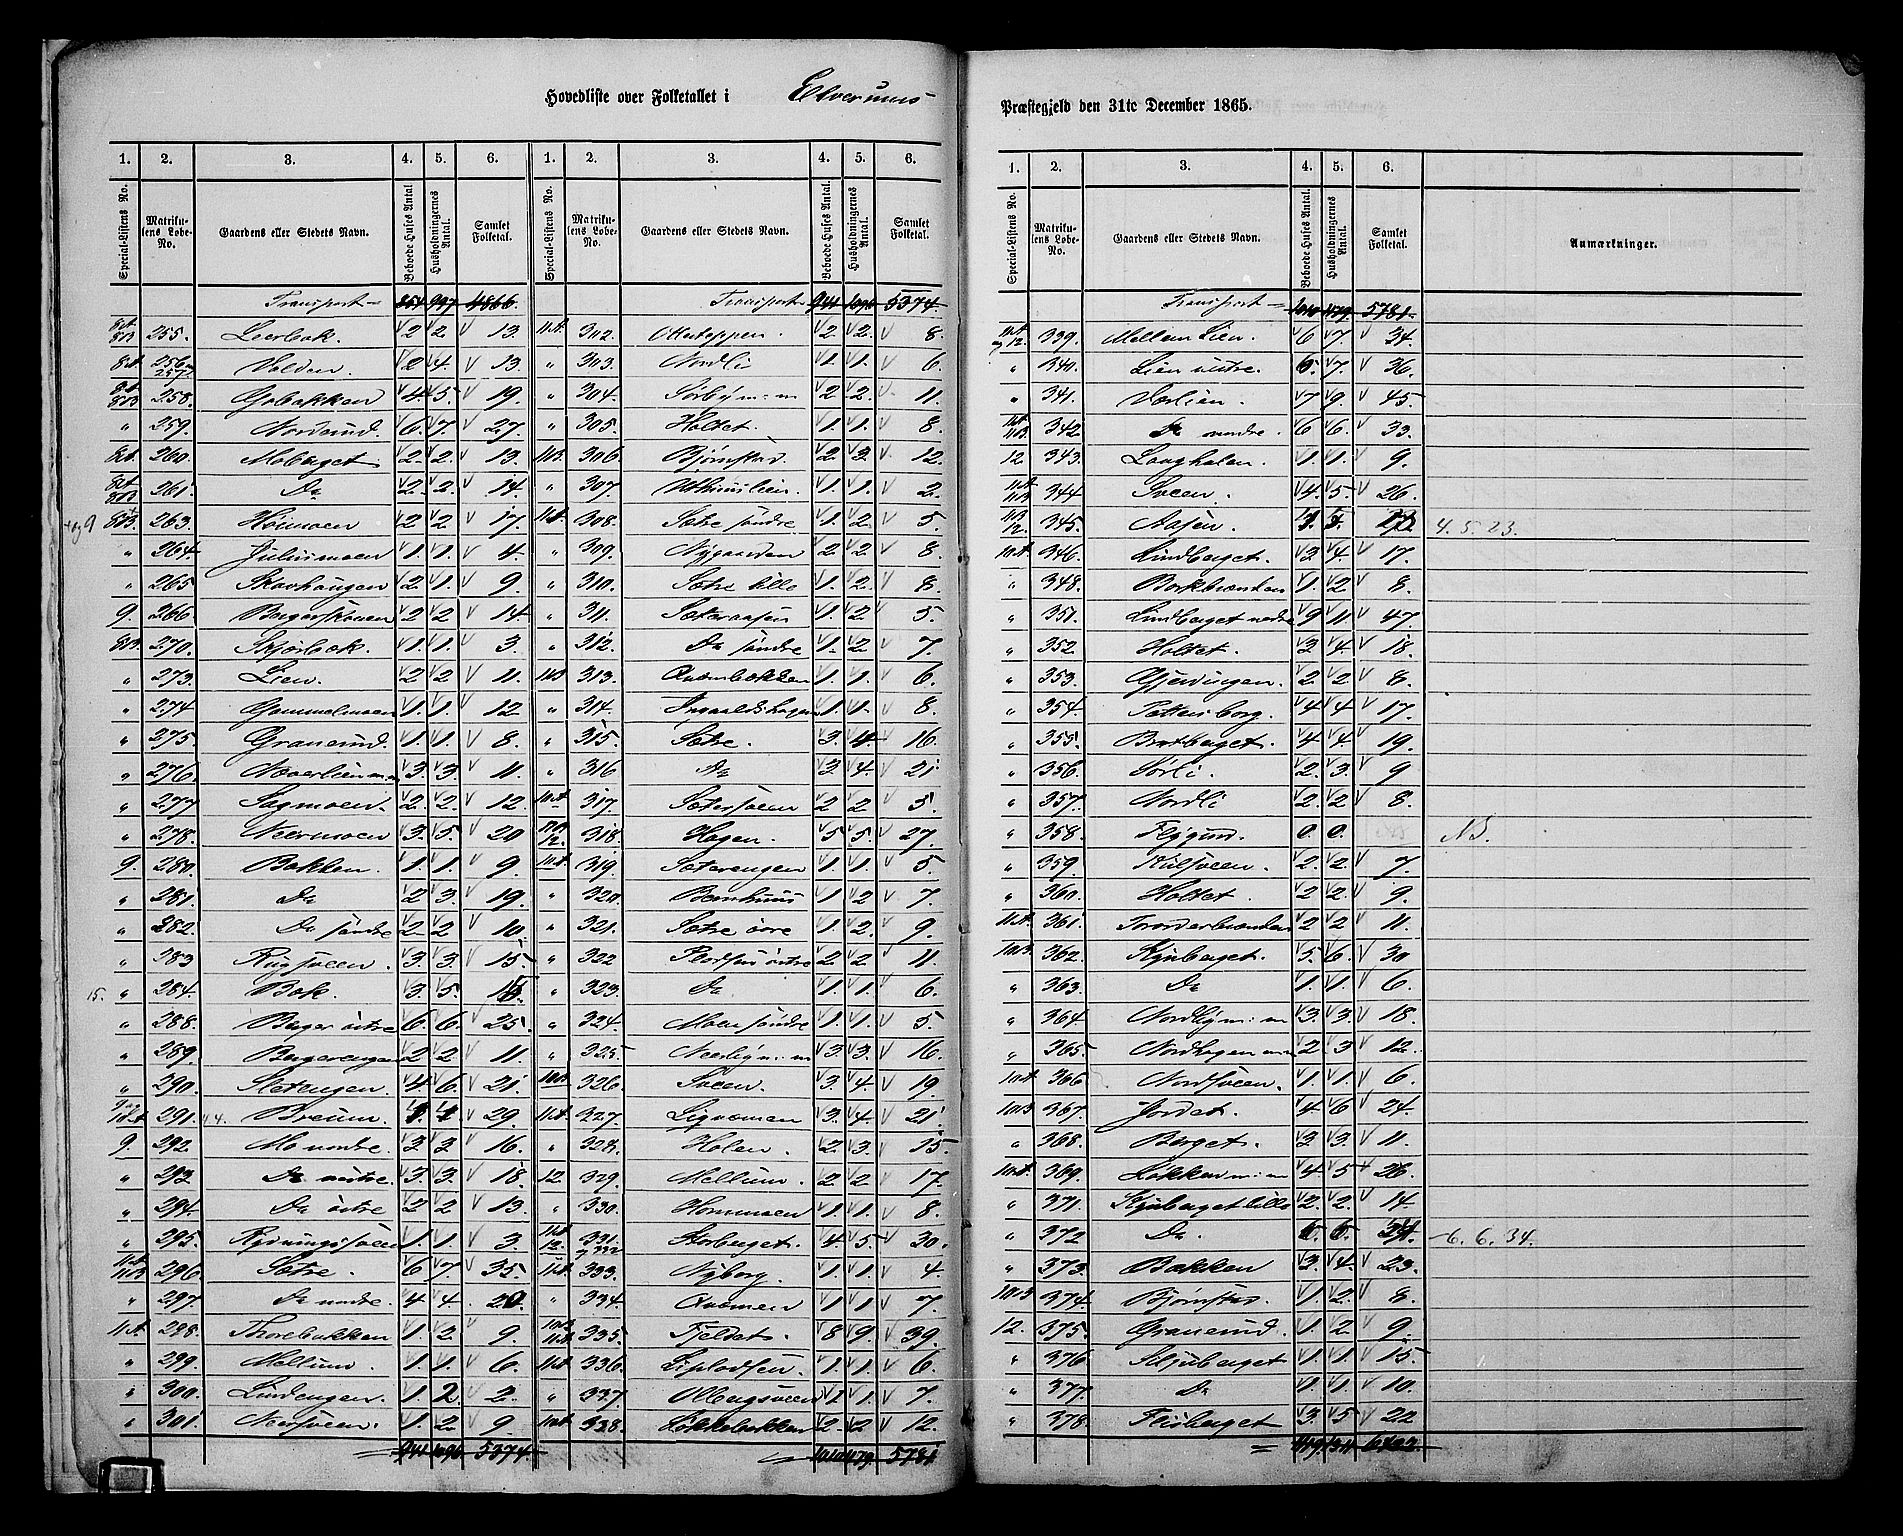 Hovedliste over Folketallet i Elverums
Præstegjeld den 31te December 1865.
1. 2. 3. 4. 5. 6. 1. 2. 3. 4. 5. 6.
Special-Listens No. Matrikulens Løbe-No. Gaardens eller Stedets Navn. Beboede Huses Antal Husholdningernes Antal. Samlet Folketal. Special-Listens No. Matrikulens Løbe-No. Gaardens eller Stedets Navn. Beboede Huses Antal. Husholdningernes Antal. Samlet Folketal.
Transport 997 4866. Transport 941 1090 5374
255. Leerbak. 2 2. 13. 11A 302. 2. 2. 8.
8A 256 257 Volden. 2 4. 13. " 303. Nordli 1. 1. 6.
258. Gobakken 4 5. 19. " 304. Sørby m: m 2. 2. 11.
" 259. Nordsund. 6. 7. 27. " 305. Holtet. 1. 1. 8.
8A 260 Moberget. 2. 2. 13. 11B 306. Bjørnstad. 2. 3. 12.
261. Do 2. 2. 14. " 307. 1. 1. 2.
og 9 8B. 263. Høimoen 2 2. 17. 11A 308. Sætre søndre 1. 2. 5.
" 264. Juliusmoen 1. 1. 4. " 309. Nygaarden 2. 2. 8.
" 265. Skavhaugen 2. 1. 9. " 310. Sætre lille 1. 2. 8.
9. 266 2 2. 14. " 311. Sæteraasen 1. 2. 5.
8B 270. Skjørbæk. 1. 1. 3. " 312. Do søndre 1. 2 7.
" 273. Lien. 2 2 11. 11B 313. 1. 1. 6.
" 274 Gammelmoen 1. 1. 12 " 314. Ingvaldshagen 1. 1. 8.
" 275. Granerud. 1. 1. 8. " 315. Sætre. 3. 4. 16.
" 276. 3. 3. 11. " 316 Do 3. 4. 21.
" 277. Sagmoen. 2. 2. 12. 10A 317. Sætersveen 2 2. 5.
" 278. Neermoen 3. 5. 20 318. Hagen. 5 5. 27.
9. 280. Bakken. 1. 1. 9. 10A 319. Sæterengen 1. 1. 5
" 281. Do 2 3. 19. " 320. Bernhuus 1 2 7.
" 282. Do søndre 2. 2. 10. " 321. Sætre øvre 1. 2. 9.
" 283 Rugsveen. 3. 3. 15. " 322 østre 2. 2 11.
15. " 284. Bæk. 3. 5. 15. " 323. Do 1. 1. 6.
" 288. Berger østre 6. 6. 25. " 324. Moen søndre 1. 1. 5
" 289. Bergerengen 2 2. 11. " 325. Neerby m: m 3. 3. 16.
" 290. Sletengen. 4 6. 21. 10B 326. Sveen. 3. 4. 19.
291. 4.4. Breum. 29. 11A 327. Ligvamoen 3. 4. 21.
9. 292. Mo nordre. 3. 3 16. " 328. Holen. 2. 3. 15.
" 293 Do vestre. 3. 3. 18. 12. 329. Mellum. 2. 2. 17.
" 294. Do østre 2 2. 13. " 330. Hommoen 1. 1. 8.
" 295. Rydningssveen 1. 1. 3. 331. Storberget. 4. 5. 30.
296. Sætre. 6 7. 35. 11A 333. Nyborg. 1. 1. 4.
" 297. Do nordre. 4 4. 20. " 334. Qvamen 1. 1. 7.
11A 298. Thorebakken 1. 2. 9. 335. Fjeldet. 8. 9. 39.
" 299. Mellum. 1. 1. 6. 11A 336. 1. 1. 6.
" 300. Lundengen. 1. 2. 2. " 337. Ollengsveen 1. 1. 7.
" 301. Neersveen. 1. 2. 9. 10A 338. Løkkebakken 2. 2 12.
= 941 1090 5374. = 1010 1179. 5781
1. 2. 3. 4. 5. 6.
Special-Listens No. Matrikulens Løbe-No. Gaardens eller Stedets Navn. Beboede Huses Antal. Husholdningernes Antal. Samlet Folketal. Anmærkninger.
Transport = 1010 1179. 5781.
339. Mellem Lien. 6 7. 34.
" 340. Lien vestre. 6. 7. 36.
" 341. Sørlien. 7 9. 45.
342. Do nordre. 6 6. 33.
12. 343. Langholen. 1. 1. 9.
344. Sveen. 4. 5. 26.
345. Aasen. 4. 5. 23.
10A. 346. Lundberget. 3 4. 17.
" 348. 1. 2 8.
" 351. Lundberget nedre 9 11. 47.
" 352. Holtet. 3 4. 18.
" 353. Gjervingen. 2 2. 8.
" 354. Pettersborg. 4 4. 17.
" 355. Bratberget. 4. 4. 19.
" 356. Sørli. 2. 3. 9
" 357. Nordli 2. 2 8.
" 358. Flygind. 0. 0. NB.
" 359. Kulsveen. 2. 2. 7.
" 360. Holtet. 2 2. 9.
11A 361. 2 2 11.
10B. 362. Kynberget. 5. 6. 30
" 363. Do 1. 1. 6.
" 364. Nordby m: m 3. 3. 18.
" 365. Nordhagen m:m 2. 3. 12.
10A. 366. Nordsveen. 1. 1. 6.
10B. 367. Jordet. 4 6 24.
" 368. Berget. 3. 3. 11.
10A 369. Løkken m: m 4. 5 26.
" 371. Kynberget lille 2. 2. 14.
" 372 Do. 6. 6. 34.
" 373. Bakken 3. 4. 23.
10B 374. Bjørnstad. 1. 2 8.
12. 375. Granerud. 1. 2. 9.
" 376. 1. 1. 15.
" 377. Do 1. 1. 10.
" 378. Flisberget 3. 5 22
= 1119. 1311.